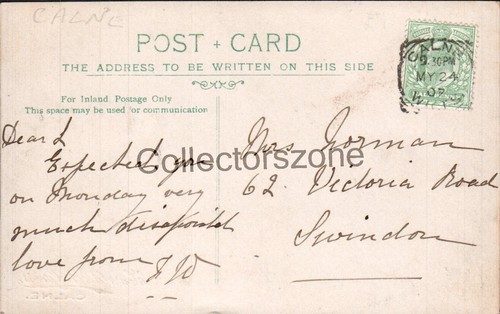 CALNE
POST + CARD
THE ADDRESS TO BE WRITTEN ON THIS SIDE
For Inland Postage Only
This space may be used for communication
CALNE
2.30PM
MY 24
07
Dear L
Expected you
on Monday very
much disapointed
love from
Mrs Norman
62 Victoria Road
Swindon
Collectorszone
CALNE.